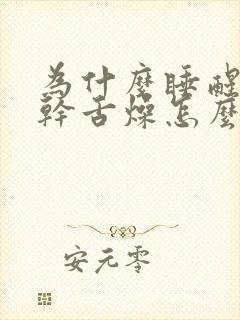 為什麼睡醒
幹舌燥怎麼
安元零